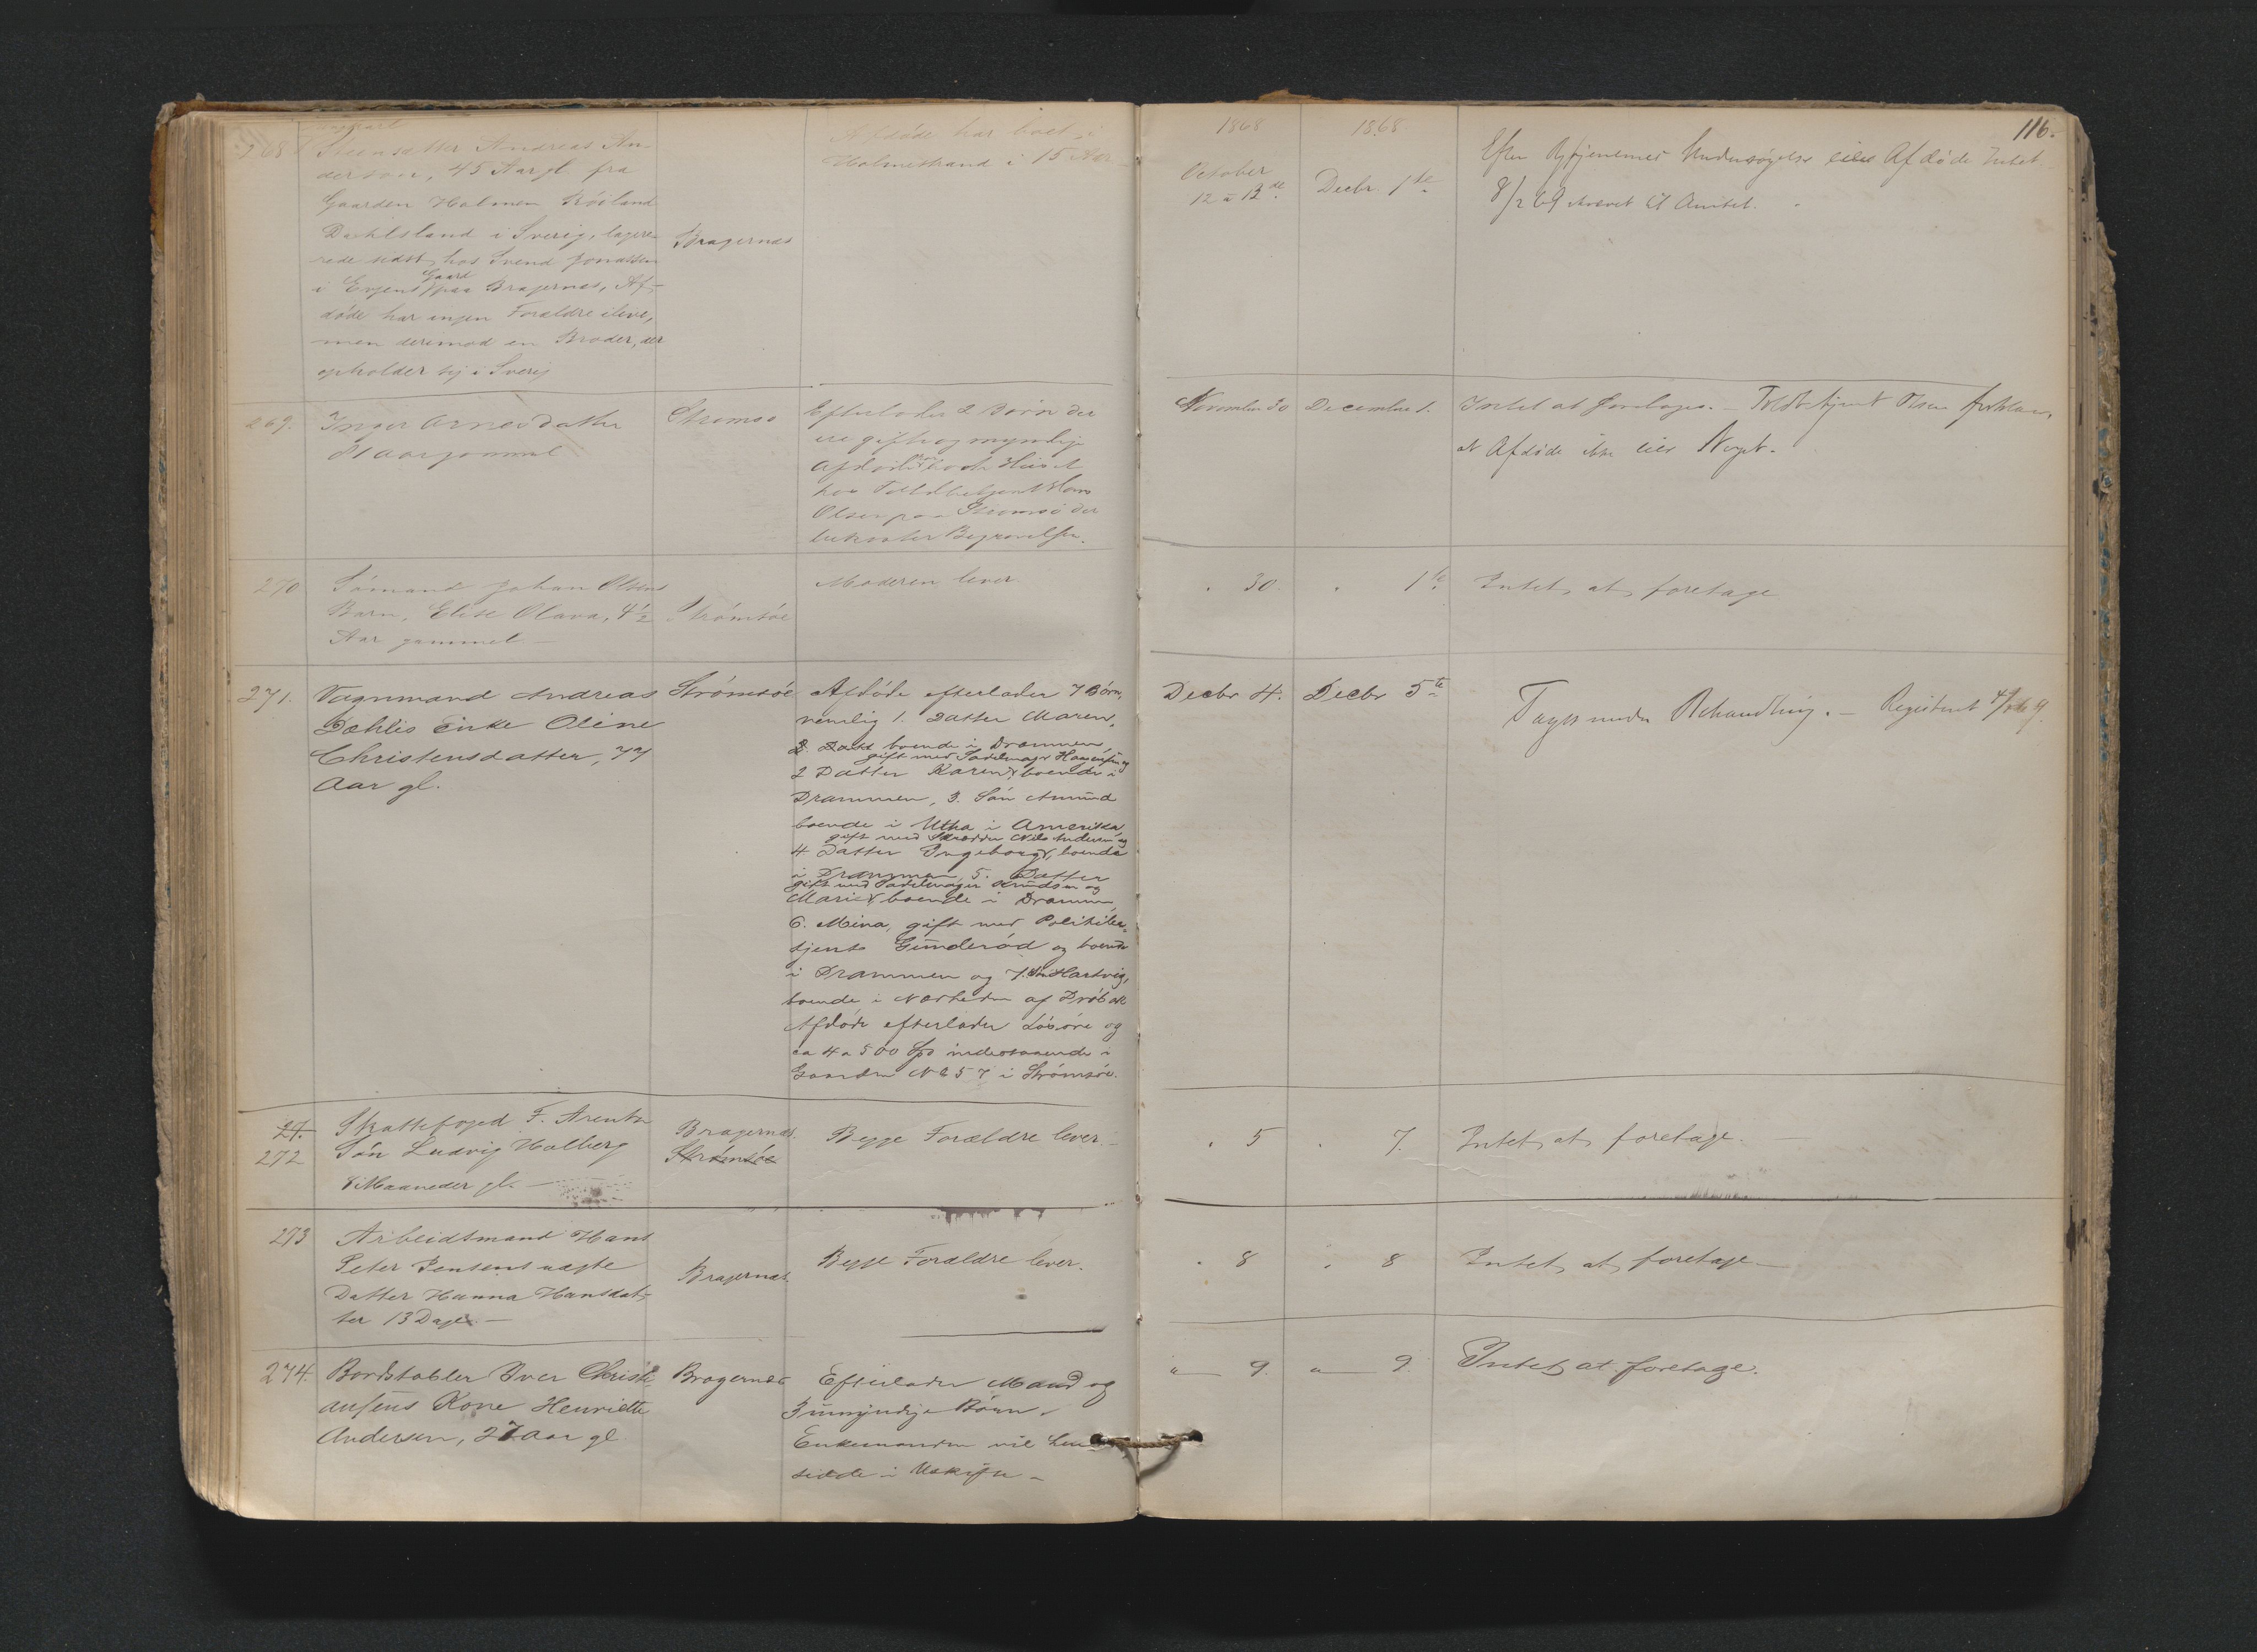 116.
1868
1868
268
Steensætter Andreas An-
dersson, 45 Aar gl. fra
Gaarden Holmen
Dahlsland i Sverig, logere-
rede sidst hos Svend Jonassen
i Evjens Gaard paa Bragernæs, Af-
døde har ingen Forældre ilive,
men derimod en Broder, der
opholder sig i Sverig
Bragernæs
Afdøde har boet i
Holmestrand i 15 Aar
October
12 a 13de
Decbr. 1te
Efter Undersøgelse eier Afdøde Intet
8/2 69 til Amtet.
269.
Inger Arnesdatter
81 Aar gammel
Strømsø
Efterlader 2 Børn der
ere gifte og myndige
Afdøde har boet i Huset
hos Toldbetjent
Olsen paa Strømsø der
bekoster Begravelsen.
November 30
December 1.
Intet at foretages. - Toldbetjent Olsen forklarer,
at Afdøde ikke eier Noget.
270
Sømand Johan Olsens
Barn, Elise Olava, 4½
Aar gammel. -
Strømsøe
Moderen lever.
" 30.
" 1te
Intet at foretage
271.
Vognmand Andreas
Dæhlis Enke Oline
Christensdatter, 77
Aar gl.
Strømsøe
Afdøde efterlader 7 Børn,
nemlig 1. Datter Maren,
boende i Drammen,
gift med Sadelmager og
2 Datter Karen, boende i
Drammen, 3. Søn Amund
boende i Utha i Amerika,
gift med Skrædder Nils Andersen og
4. Datter Ingeborg, boende
i Drammen, 5. Datter
gift med Sadelmager Knudsen og
Marie, boende i Drammen,
6. Mina, gift med Politibe-
tjent Gunderød og boende
i Drammen og 7. Søn Hartvig,
boende i Nærheden af Drøbak
Afdøde efterlader Løsøre og
ca 4 a 500 Spd indestaaende i
Gaarden No 57 i Strømsøe.
Decbr 4.
Decbr 5te
Tages under Behandling. - Registreret
27.
272
Skattefoged F. Arentz
Søn Ludvig Holberg
8 Maaneder gl. -
Bragernæs.
Strømsøe
Begge Forældre lever. -
" 5
" 7.
Intet at foretage. -
273
Arbeidsmand Hans
Peter Jensens uægte
Datter Hanna Hansdat-
ter 13 Dage. -
Bragernæs.
Begge Forældre lever.
" 8
" 8
Intet at foretage -
274.
Bordstabler Iver Christi-
ansens Kone Henriette
Andersen, 27 Aar gl
Bragernæs
Efterlader Mand og
3 umyndige Børn.
Enkemanden vil hen-
sidde i Uskiftet -
" 9.
" 9.
Intet at foretage.